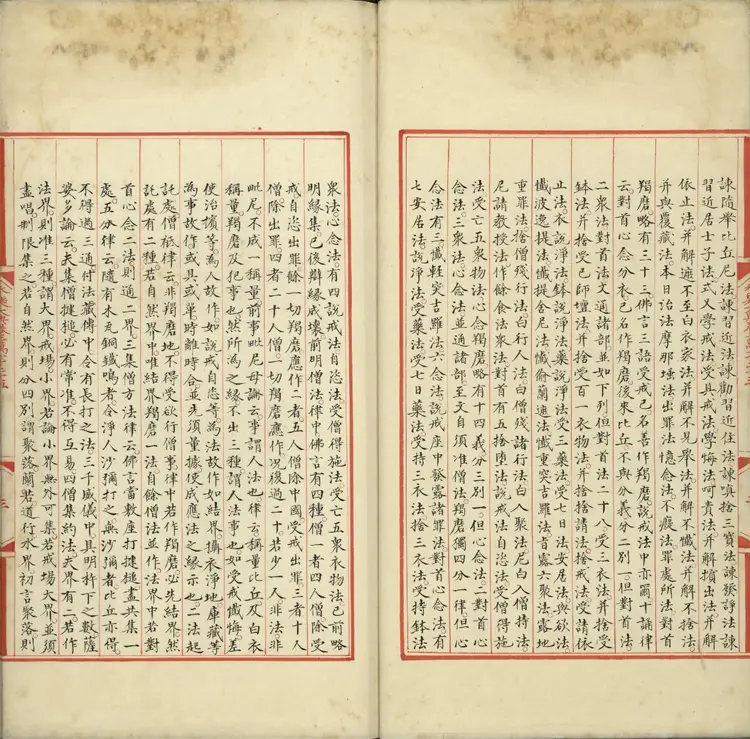 諫隨舉比丘尼諫習近法諫勸習近住法諫嗔捨三寶法諫發諍法諫
習近居士子法式叉學戒法受具戒法學悔法呵責法并解擯出法并解
依止法并解遮不至白衣家法并解不見舉法并解不懺法并解不捨法
并與覆藏法本日治法摩那埵法出罪法憶念法不癡法罪處所法對首
羯磨略有三十三佛言三語受戒已名善作羯磨說戒法中亦爾十誦律
云對首心念分衣已名作羯磨後來比丘不與分義分二別一但對首法
二衆法對首法文通諸部並如下列但對首法二十八受三衣法并捨受
鉢法并捨受尼師壇法并捨受百一衣物法并捨捨請法捨戒法受請依
止法本說淨法鉢說淨法藥說淨法受三藥法受七日法安居法與欲法
懺波逸提法懺提舍尼法懺偷蘭遮法懺重突吉羅法白露六聚法露地
重罪法捨僧殘行法白行人法白僧殘諸行法白入聚法尼白入僧持法
尼請教授法作餘食法衆法對首有五捨墮法說戒法自恣法受僧得施
法受亡五衆物法心念羯磨略有十四義分三別一但心念法二對首心
念法三衆法心念法並通諸部至文自須准僧法羯磨獨四分一律但心
念法有三懺輕突吉羅法六念法說戒座中發露諸罪法對首心念法有
七安居法說淨法受藥法受七日藥法受持三衣法捨三衣法受持鉢法
衆法心念法有四說戒法自恣法受僧得施法受亡五衆衣物法已前略
明緣集已後辯緣成壞前明僧法律中佛言有四種僧一者四人僧除受
戒自恣出罪餘一切羯磨應作二者五人僧除中國受戒出罪三者十人
僧除出罪四者二十人僧一切羯磨應作況復過二十若少一人非法非
毗尼不成一稱量前事毗尼母論云事謂人法也律云稱量比丘及白衣
稱量羯磨及犯事也然所為之緣不出三種謂人法事也如受戒懺悔差
使治擯等為人故作如說戒自恣等為法故作如結界攝衣淨地庫藏等
為事故作或具或單時離時合並先須量據使成應法之緣示也二法起
託處僧祇律云非羯磨地不得受欲行僧事律中若作羯磨必先結界然
託處有二種若自然界中唯結界羯磨一法自餘僧法並作法界中若對
首心念二法則通二界三集僧方法律云佛言當敷座打揵槌盡共集一
處五分律云隨有木瓦銅鐵鳴者令淨人沙彌打之無沙彌者比丘亦得
不得過三通付法藏傳中令有長打之法三千威儀中具明杵下之數薩
婆多論云夫集僧揵槌必有常准不得互易四僧集約法夫界有二若作
法界則准三種謂大界戒場小界若論小界無外可集若戒場大界並須
盡唱制限集之若自然界則分四別謂聚落蘭若道行水界初言聚落則